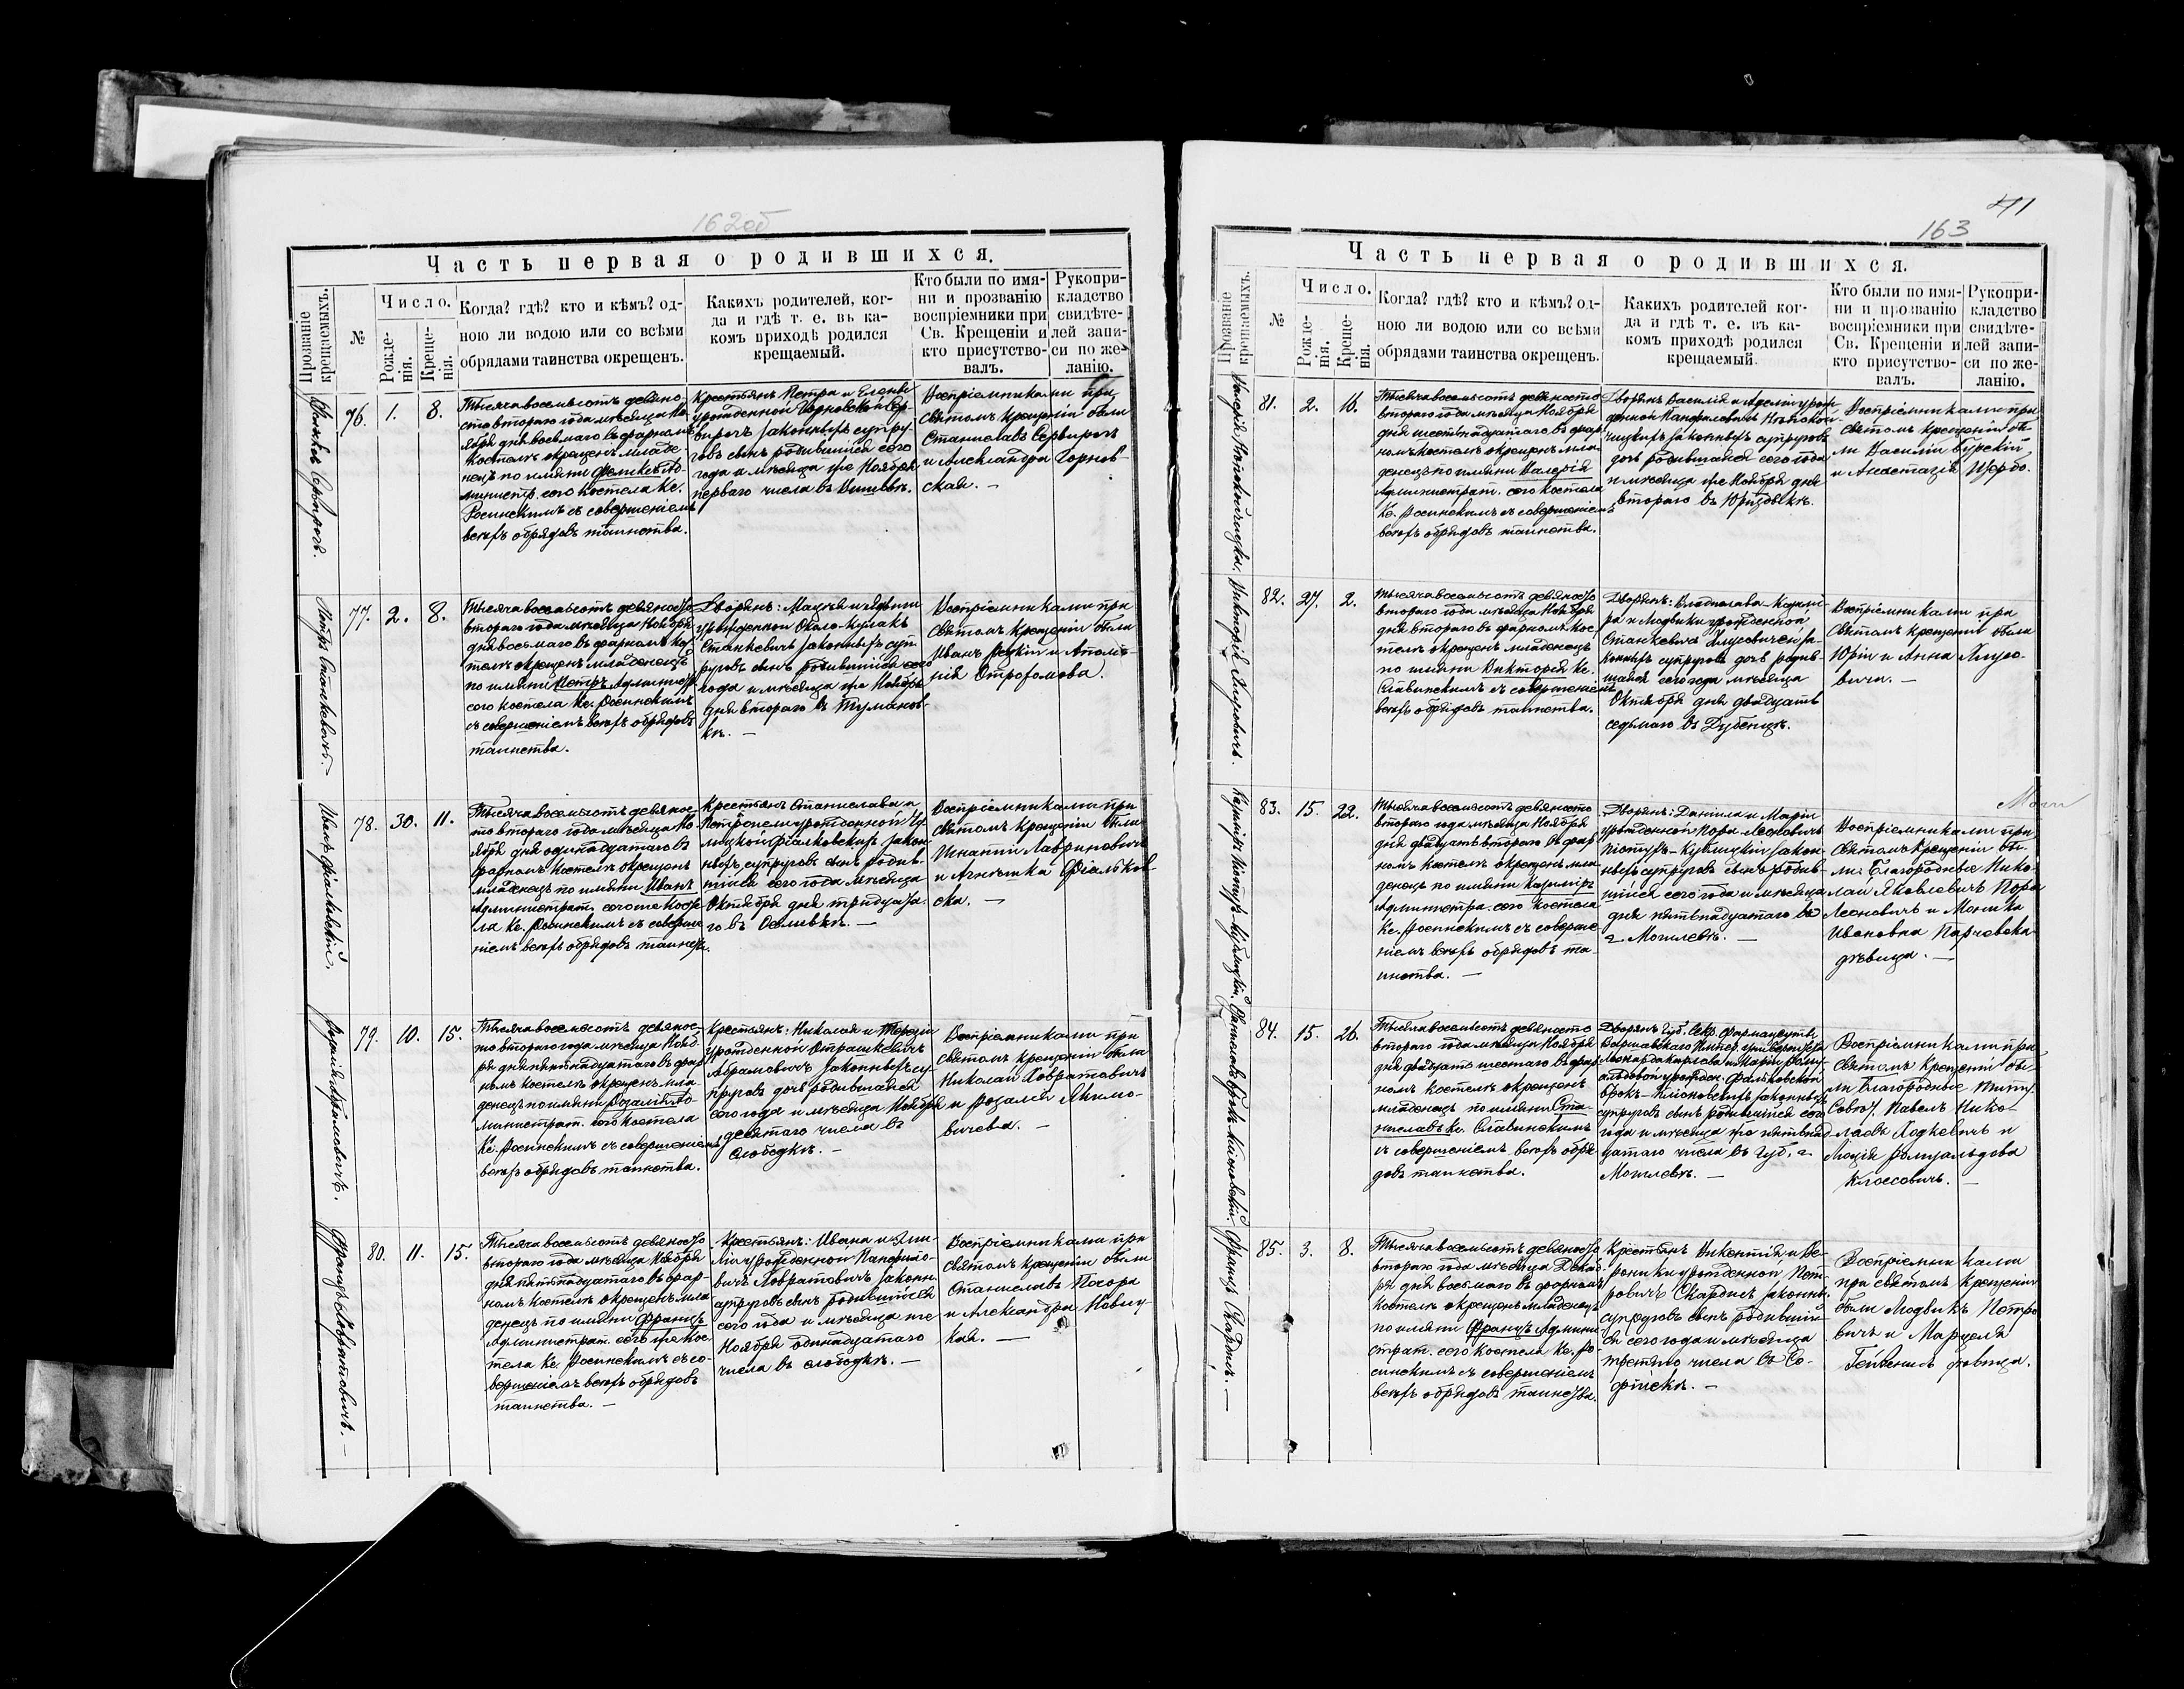 162об
Часть первая о родившихся.
Прозваніе крещаемыхъ.
№
Число.
Рожде-
нія.
Креще-
нія.
Когда? гдѣ? кто и кѣмъ? од-
ною ли водою или со всѣми
обрядами таинства окрещенъ.
Какихъ родителей, ког-
да и гдѣ т. е. въ ка-
комъ приходѣ родился
крещаемый.
Кто были по имя-
ни и прозванію
воспріемники при
Св. Крещеніи и
кто присутство-
валъ.
Рукопри-
кладство
свидѣте-
лей запи-
си по же-
ланію.
76. 1. 8.
Тысяча восемьсотъ девяно-
сто втораго года мѣсяца Но-
ября дня восьмаго въ фарномъ
Костелѣ окрещенъ младе-
нецъ по имяни
министр. сего Костела Кс.
Росинскимъ съ совершеніемъ
всѣхъ обрядовъ таинства.
Крестьянъ Петра и Елены
урожденной Горновской Сер-
вирогъ законныхъ супру-
говъ сынъ родившійся сего
года и мѣсяца же Ноября
перваго числа въ
Воспріемниками при
святомъ крещеніи были
Станиславъ Сервирогъ
и Александра Горнов-
ская. —
Петръ Станкевичъ. —
77. 2. 8.
Тысяча восемьсотъ девяносто
втораго года мѣсяца Ноября
дня восьмаго въ фарномъ Кос-
телѣ окрещенъ младенецъ
по имяни Петръ Администр.
сего Костела Кс. Росинскимъ
съ совершеніемъ всѣхъ обрядовъ
таинства.
Дворянъ: Мацѣя и Ядвиги
урожденной Около-Кулакъ
Станкевичъ законныхъ суп-
руговъ сынъ родившійся сего
года и мѣсяца же Ноября
дня втораго въ Туманов-
кѣ. —
Воспріемниками при
святомъ крещеніи были
Иванъ и Аполо-
нія
Иванъ Фіалковскій.
78. 30. 11.
Тысяча восемьсотъ девянос-
то втораго года мѣсяца Но-
ября дня одинадцатаго въ
фарномъ Костелѣ окрещенъ
младенецъ по имяни Иванъ
Администрат. сего же Косте-
ла Кс. Росинскимъ съ соверше-
ніемъ всѣхъ обрядовъ таинств.
Крестьянъ Станислава и
Петронели урожденной
Фіалковскихъ закон-
ныхъ супруговъ сынъ родив-
шійся сего года мѣсяца
Октября дня тридцата-
го въ Осливкѣ. —
Воспріемниками при
святомъ крещеніи были
Игнатій Лавриновичъ
и Агнѣшка Фіальков-
ска. —
79. 10. 15.
Тысяча восемьсотъ девянос-
то втораго года мѣсяца Нояб-
ря дня пятнадцатаго въ фар-
номъ Костелѣ окрещенъ мла-
денецъ по имяни Розалія Ад-
министрат. сего Костела
Кс. Росинскимъ съ совершеніемъ
всѣхъ обрядовъ таинства.
Крестьянъ: Николая и Терезіи
урожденной Отрашкевичъ
Абрамовичъ законныхъ су-
пруговъ дочь родившаяся
сего года и мѣсяца Ноября
девятаго числа въ
Слободкѣ. —
Воспріемниками при
святомъ крещеніи были
Николай Ховратовичъ
и Розалія Якимо-
вичева. —
Францъ Ховратовичъ. —
80. 11. 15.
Тысяча восемьсотъ девяносто
втораго года мѣсяца Ноября
дня пятнадцатаго въ фар-
номъ Костелѣ окрещенъ мла-
денецъ по имяни Францъ
Администрат. сего же Кос-
тела Кс. Росинскимъ съ со-
вершеніемъ всѣхъ обрядовъ
таинства. —
Крестьянъ: Ивана и Эми-
ліи урожденной Панфило-
вичъ Ховратовичъ законн.
супруговъ сынъ родившійся
сего года и мѣсяца же
Ноября одинадцатаго
числа въ слободкѣ. —
Воспріемниками при
святомъ крещеніи были
Станиславъ Погора
и Александра Новиц-
кая. —
41
163
Часть первая о родившихся.
Прозваніе крещаемыхъ.
№
Число.
Рожде-
нія.
Креще-
нія.
Когда? гдѣ? кто и кѣмъ? од-
ною ли водою или со всѣми
обрядами таинства окрещенъ.
Какихъ родителей ког-
да и гдѣ т. е. въ ка-
комъ приходѣ родился
крещаемый.
Кто были по имя-
ни и прозванію
воспріемники при
Св. Крещеніи и
кто присутство-
валъ.
Рукопри-
кладство
свидѣте-
лей запи-
си по же-
ланію.
81. 2. 16.
Тысяча восемьсотъ девяносто
втораго года мѣсяца Ноября
дня шестнадцатаго въ фар-
номъ Костелѣ окрещенъ мла-
денецъ по имяни Валерія
Администрат. сего Костела
Кс. Росинскимъ съ совершеніемъ
всѣхъ обрядовъ таинства.
Дворянъ Василія и Аделіи урож-
денной Панфиловичъ
законныхъ супруговъ
дочь родившаяся сего года
и мѣсяца же Ноября дня
втораго въ Юриздыкѣ.
Воспріемниками при
святомъ крещеніи бы-
ли Василій Бурскій
и Анастазія Щербо.
82. 27. 2.
Тысяча восемьсотъ девяносто
втораго года мѣсяца Ноября
дня втораго въ фарномъ Кос-
телѣ окрещенъ младенецъ
по имяни Викторія Кс.
Славинскимъ съ совершеніемъ
всѣхъ обрядовъ таинства.
Дворянъ: Владислава-Казими-
ра и Людвики урожденной
Станкевичъ за-
конныхъ супруговъ дочь родив-
шаяся сего года мѣсяца
Октября дня двадцать
седьмаго въ Дубенцѣ.
Воспріемниками при
Святомъ Крещеніи были
Юрій и Анна
83. 15. 22.
Тысяча восемьсотъ девяносто
втораго года мѣсяца Ноября
дня двадцать втораго въ фар-
номъ Костелѣ окрещенъ мла-
денецъ по имяни Казиміръ
Администра. сего Костела
Кс. Росинскимъ съ соверше-
ніемъ всѣхъ обрядовъ та-
инства. —
Дворянъ: Даніила и Маріи
урожденной Пора-Леоновичъ
Піотухъ-Кублицкихъ закон-
ныхъ супруговъ сынъ родив-
шійся сего года и мѣсяца
дня пятнадцатаго въ
г. Могилевѣ. —
Воспріемниками при
Святомъ Крещеніи бы-
ли: Благородные Нико-
лай Яковлевичъ Пора
Леоновичъ и Моника
Ивановна Парчевска
дѣвица. —
84. 15. 26.
Тысяча восемьсотъ девяносто
втораго года мѣсяца Ноября
дня двадцать шестаго въ фар-
номъ Костелѣ окрещенъ
младенецъ по имяни Ста-
ниславъ Кс. Славинскимъ
съ совершеніемъ всѣхъ обря-
довъ таинства.
Дворянъ Губ. Секр.
супруговъ сынъ родившійся сего
года и мѣсяца же пятнад-
цатаго числа въ Губ. г.
Могилевѣ. —
Воспріемниками при
Святомъ Крещеніи бы-
ли Благородные Титу.
Совѣт. Павелъ Нико-
лаевъ Ходкевичъ и
Ромуальдова
Клоссовичъ. —
85. 3. 8.
Тысяча восемьсотъ девяносто
втораго года мѣсяца Декаб-
ря дня восьмаго въ фарномъ
Костелѣ окрещенъ младенецъ
по имяни Францъ Админи-
страт. сего Костела Кс. Ро-
синскимъ съ совершеніемъ
всѣхъ обрядовъ таинства.
Крестьянъ Викентія и Ве-
роники урожденной Пет-
ровичъ Скардысъ законн.
супруговъ сынъ родившій-
ся сего года и мѣсяца
третьяго числа въ Со-
фійскѣ. —
Воспріемниками
при святомъ Крещеніи
были Людвикъ Петро-
вичъ и Марцеля